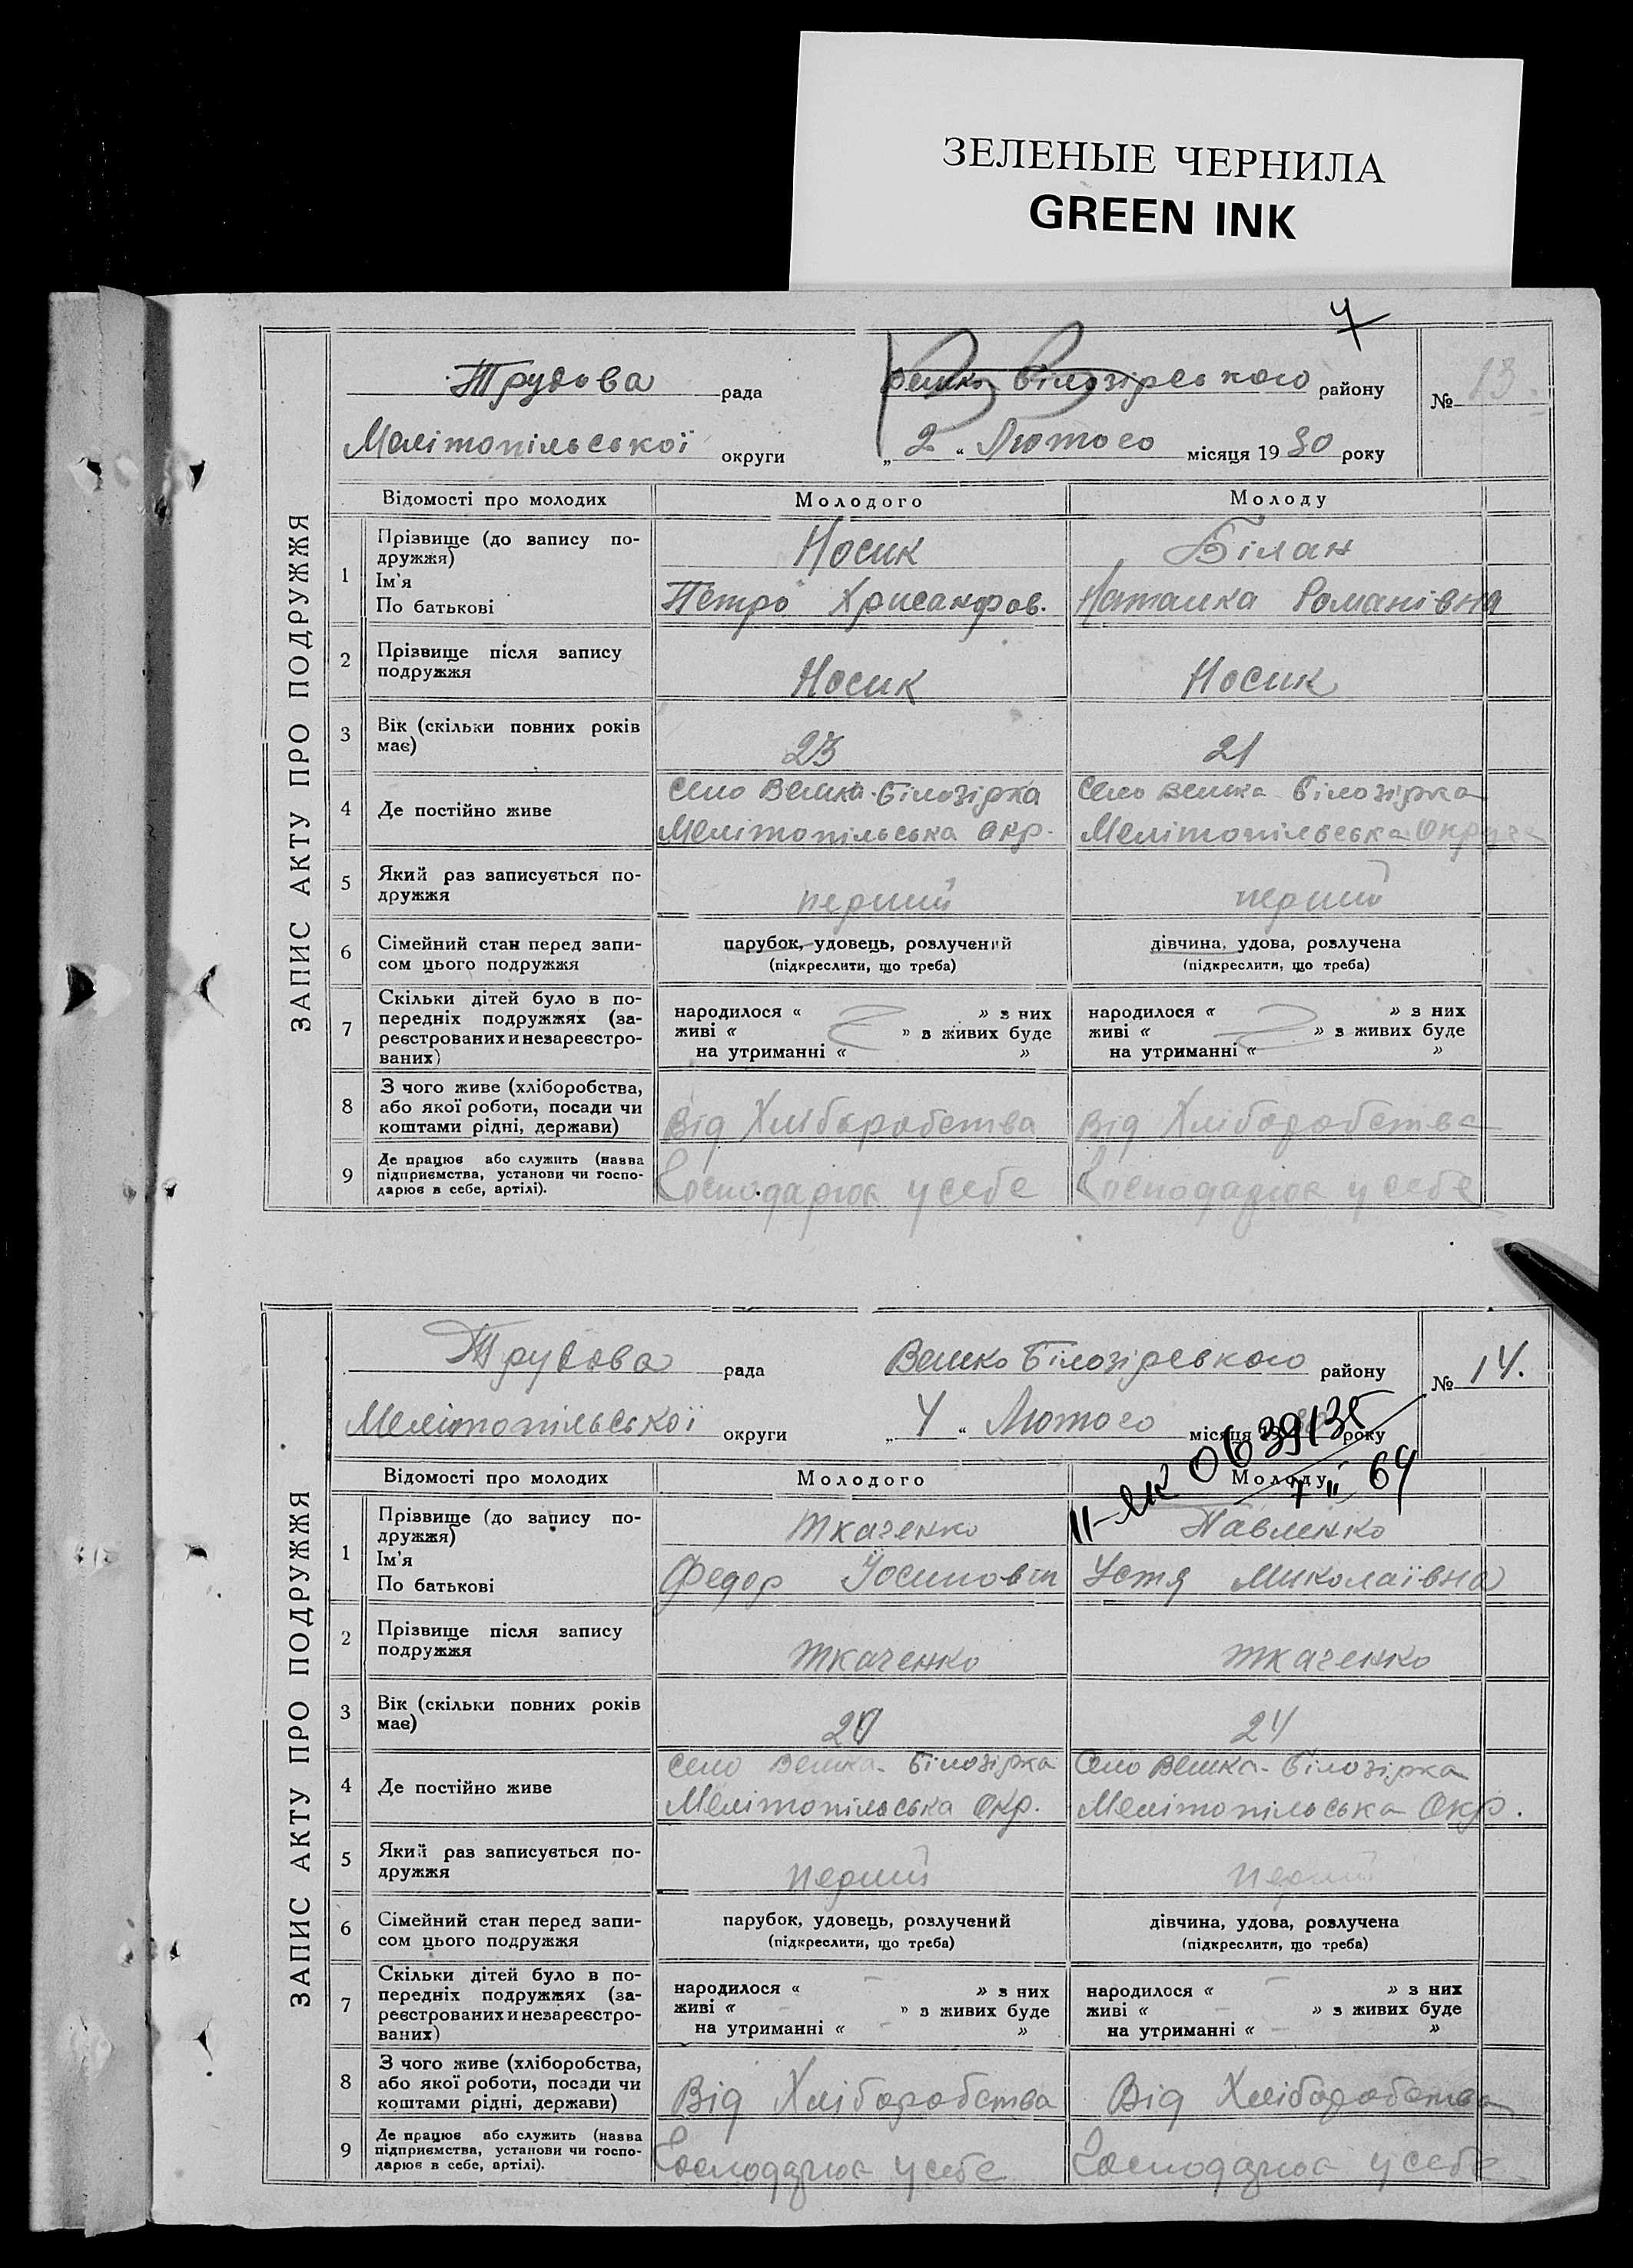 ЗЕЛЕНЫЕ ЧЕРНИЛА
GREEN INK
ЗАПИС АКТУ ПРО ПОДРУЖЖЯ
Трудова рада Велико Білозірського району № 13
Мелітопільської округи „2“ Лютого місяця 1930 року
Відомості про молодих Молодого Молоду
1 Прізвище (до запису по-
дружжя) Носик Білан
Ім'я
По батькові Петро Хрисанфов. Наталка Романівна
2 Прізвище після запису
подружжя Носик Носик
3 Вік (скільки повних років
має) 23 21
4 Де постійно живе Село Велика-Білозірка Село Велика Білозірка
Мелітопільська Окр. Мелітопільська Округа
5 Який раз записується по-
дружжя перший перший
6 Сімейний стан перед запи- парубок, удовець, розлучений дівчина, удова, розлучена
сом цього подружжя (підкреслити, що треба) (підкреслити, що треба)
7 Скільки дітей було в по-
передніх подружжях (за-
реєстрованих и незареєстро-
ваних)
народилося « » з них народилося « » з них
живі « » з живих буде живі « » з живих буде
на утриманні « » на утриманні « »
8 З чого живе (хліборобства,
або якої роботи, посади чи
коштами рідні, держави) Від Хліборобства Від Хліборобства
9 Де працює або служить (назва
підприємства, установи чи госпо-
дарює в себе, артілі). Господарює у себе Господарює у себе
ЗАПИС АКТУ ПРО ПОДРУЖЖЯ
Трудова рада Велико Білозірського району № 14.
Мелітопільської округи „4“ Лютого місяця 1930 року
0639135
64
Відомості про молодих Молодого Молоду
1 Прізвище (до запису по-
дружжя) Ткаченко Павленко
Ім'я
По батькові Федор Йосипович Устя Миколаївна
2 Прізвище після запису
подружжя Ткаченко Ткаченко
3 Вік (скільки повних років
має) 24
4 Де постійно живе Село Велика-Білозірка Село Велика-Білозірка
Мелітопільська Окр. Мелітопільська Окр.
5 Який раз записується по-
дружжя перший перший
6 Сімейний стан перед запи- парубок, удовець, розлучений дівчина, удова, розлучена
сом цього подружжя (підкреслити, що треба) (підкреслити, що треба)
7 Скільки дітей було в по-
передніх подружжях (за-
реєстрованих и незареєстро-
ваних)
народилося « – » з них народилося « – » з них
живі « – » з живих буде живі « – » з живих буде
на утриманні « – » на утриманні « – »
8 З чого живе (хліборобства,
або якої роботи, посади чи
коштами рідні, держави) Від Хліборобства Від Хліборобства
9 Де працює або служить (назва
підприємства, установи чи госпо-
дарює в себе, артілі). Господарює у себе Господарює у себе